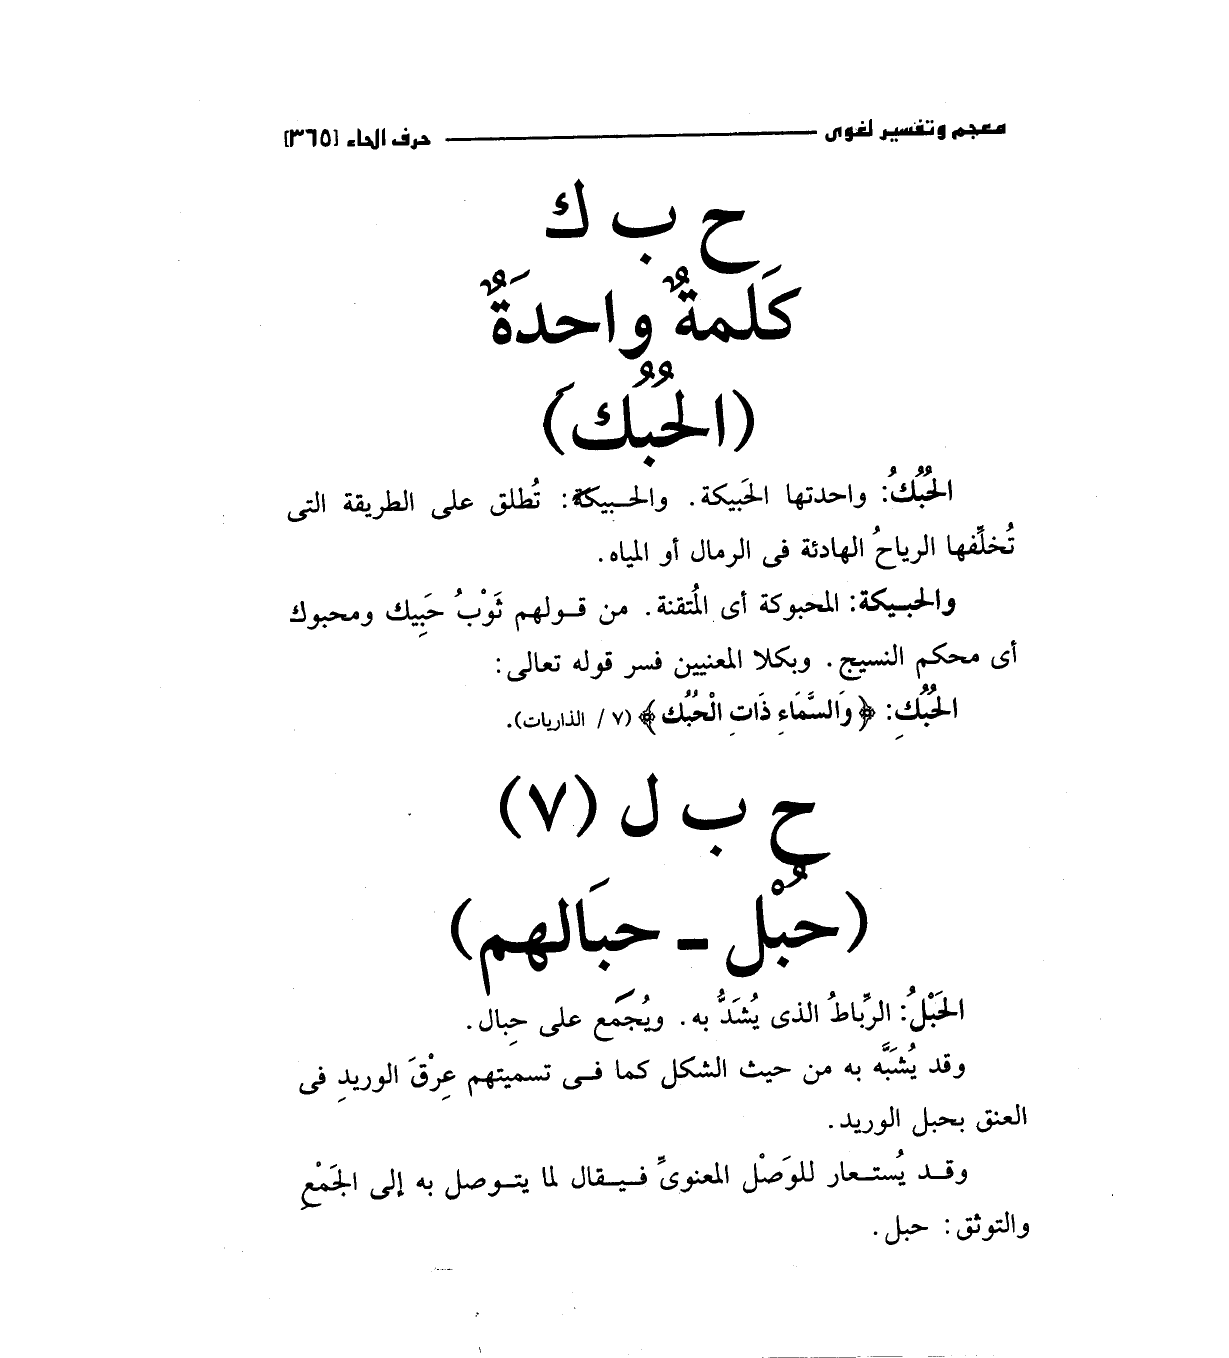 معجم وتفسير لغوى حرف الحاء [٣٦٥]
ح ب ك
كَلمةٌ واحدَةٌ
(الحُبُك)
الحُبُكُ: واحدتها الحَبيكة. والحبيكة: تُطلق على الطريقة التى
تُخلِّفها الرياحُ الهادئة فى الرمال أو المياه.
والحبيكة: المحبوكة أى المُتقنة. من قولهم ثَوْبُ حَبِيك ومحبوك
أى محكم النسيج. وبكلا المعنيين فسر قوله تعالى:
الحُبُكِ: ﴿وَالسَّمَاءِ ذَاتِ الْحُبُك﴾ (٧ / الذاريات).
ح ب ل (٧)
(حُبْل - حبَالهم)
الحَبْلُ: الرِّباطُ الذى يُشَدُّ به. ويُجَمع على حِبال.
وقد يُشَبَّه به من حيث الشكل كما فى تسميتهم عِرْقَ الوريدِ فى
العنق بحبل الوريد.
وقد يُستعار للوَصْل المعنوىِّ فيقال لما يتوصل به إلى الجَمْعِ
والتوثق: حبل.